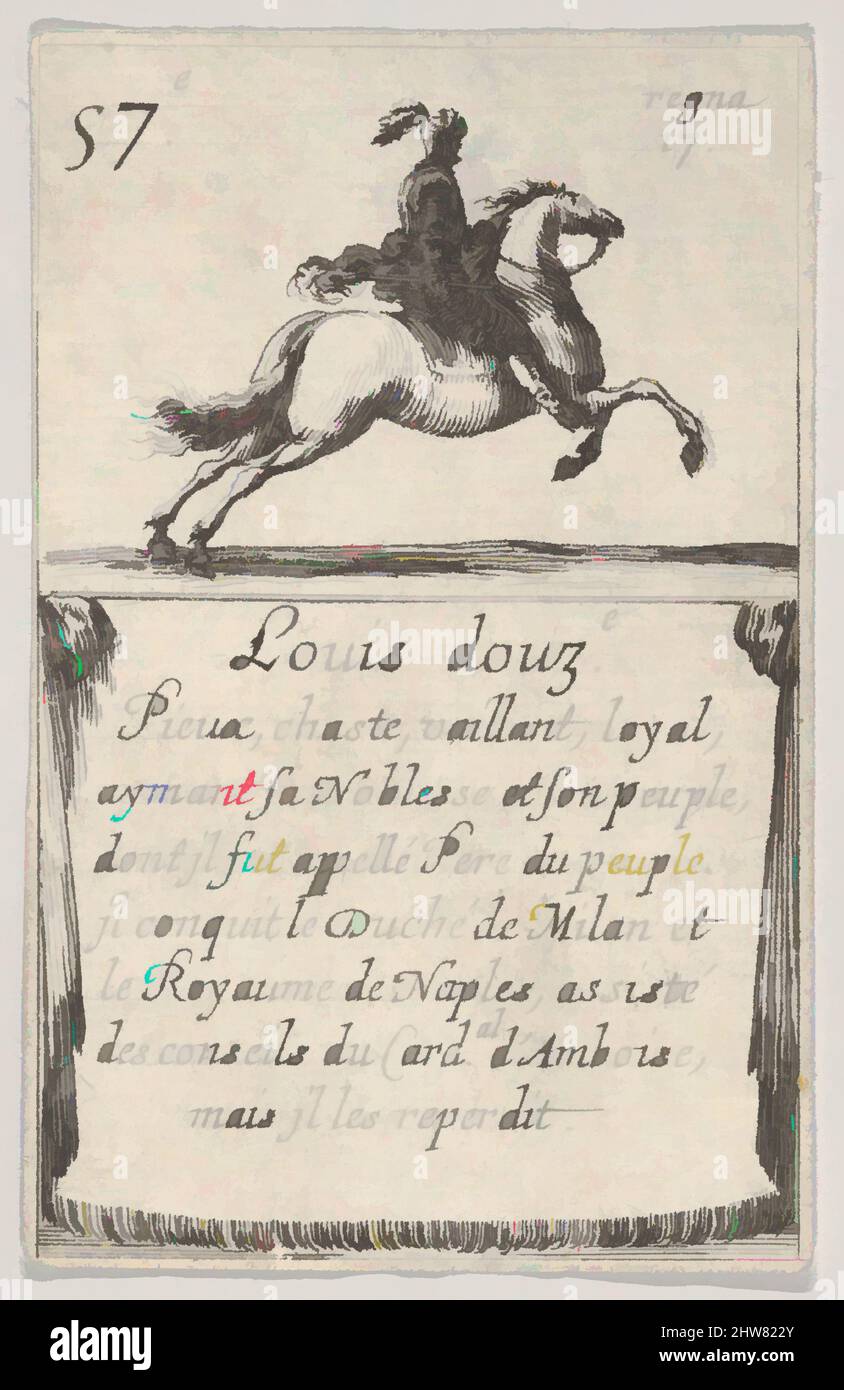 57e
regna 17
Louis douze
Pieux, chaste, vaillant, loyal,
aymant sa Noblesse et son peuple,
dont jl fut appellé Pere du peuple
jl conquit le Duché de Milan et
le Royaume de Naples, assisté
des conseils du Card.al d'Amboise,
mais j'l les reperdit
alamy
Image ID: 2HW822Y
www.alamy.com